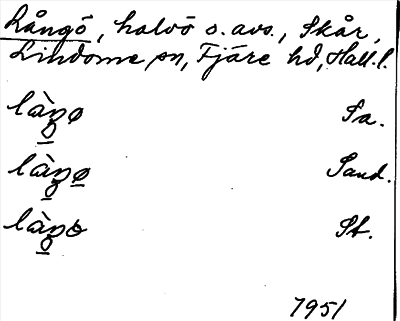 Långö, halvö o. avs., Skår,
Lindome sn, Fjäre hd, Hall. l.
làŋø Sa.
làŋø Sand.
làŋɵ St.
1951